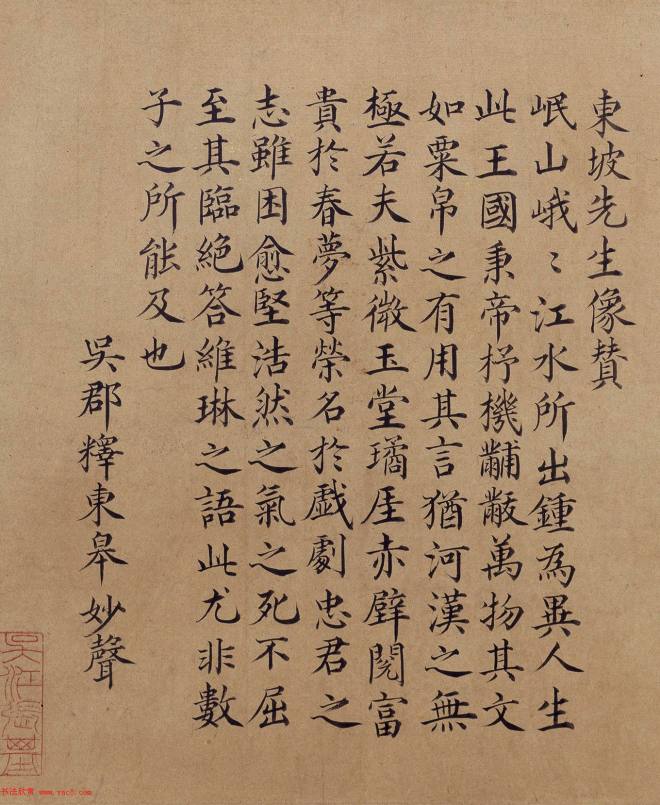 東坡先生像賛
岷山峨〻江水所出鍾為異人生
此王國秉帝杼機黼黻萬物其文
如粟帛之有用其言猶河漢之無
極若夫紫微玉堂璚厓赤壁閱富
貴於春夢等榮名於戲劇忠君之
志雖困愈堅浩然之氣之死不屈
至其臨絕答維琳之語此尤非數
子之所能及也
吳郡釋東皋妙聲
书法欣赏 www.yac8.com